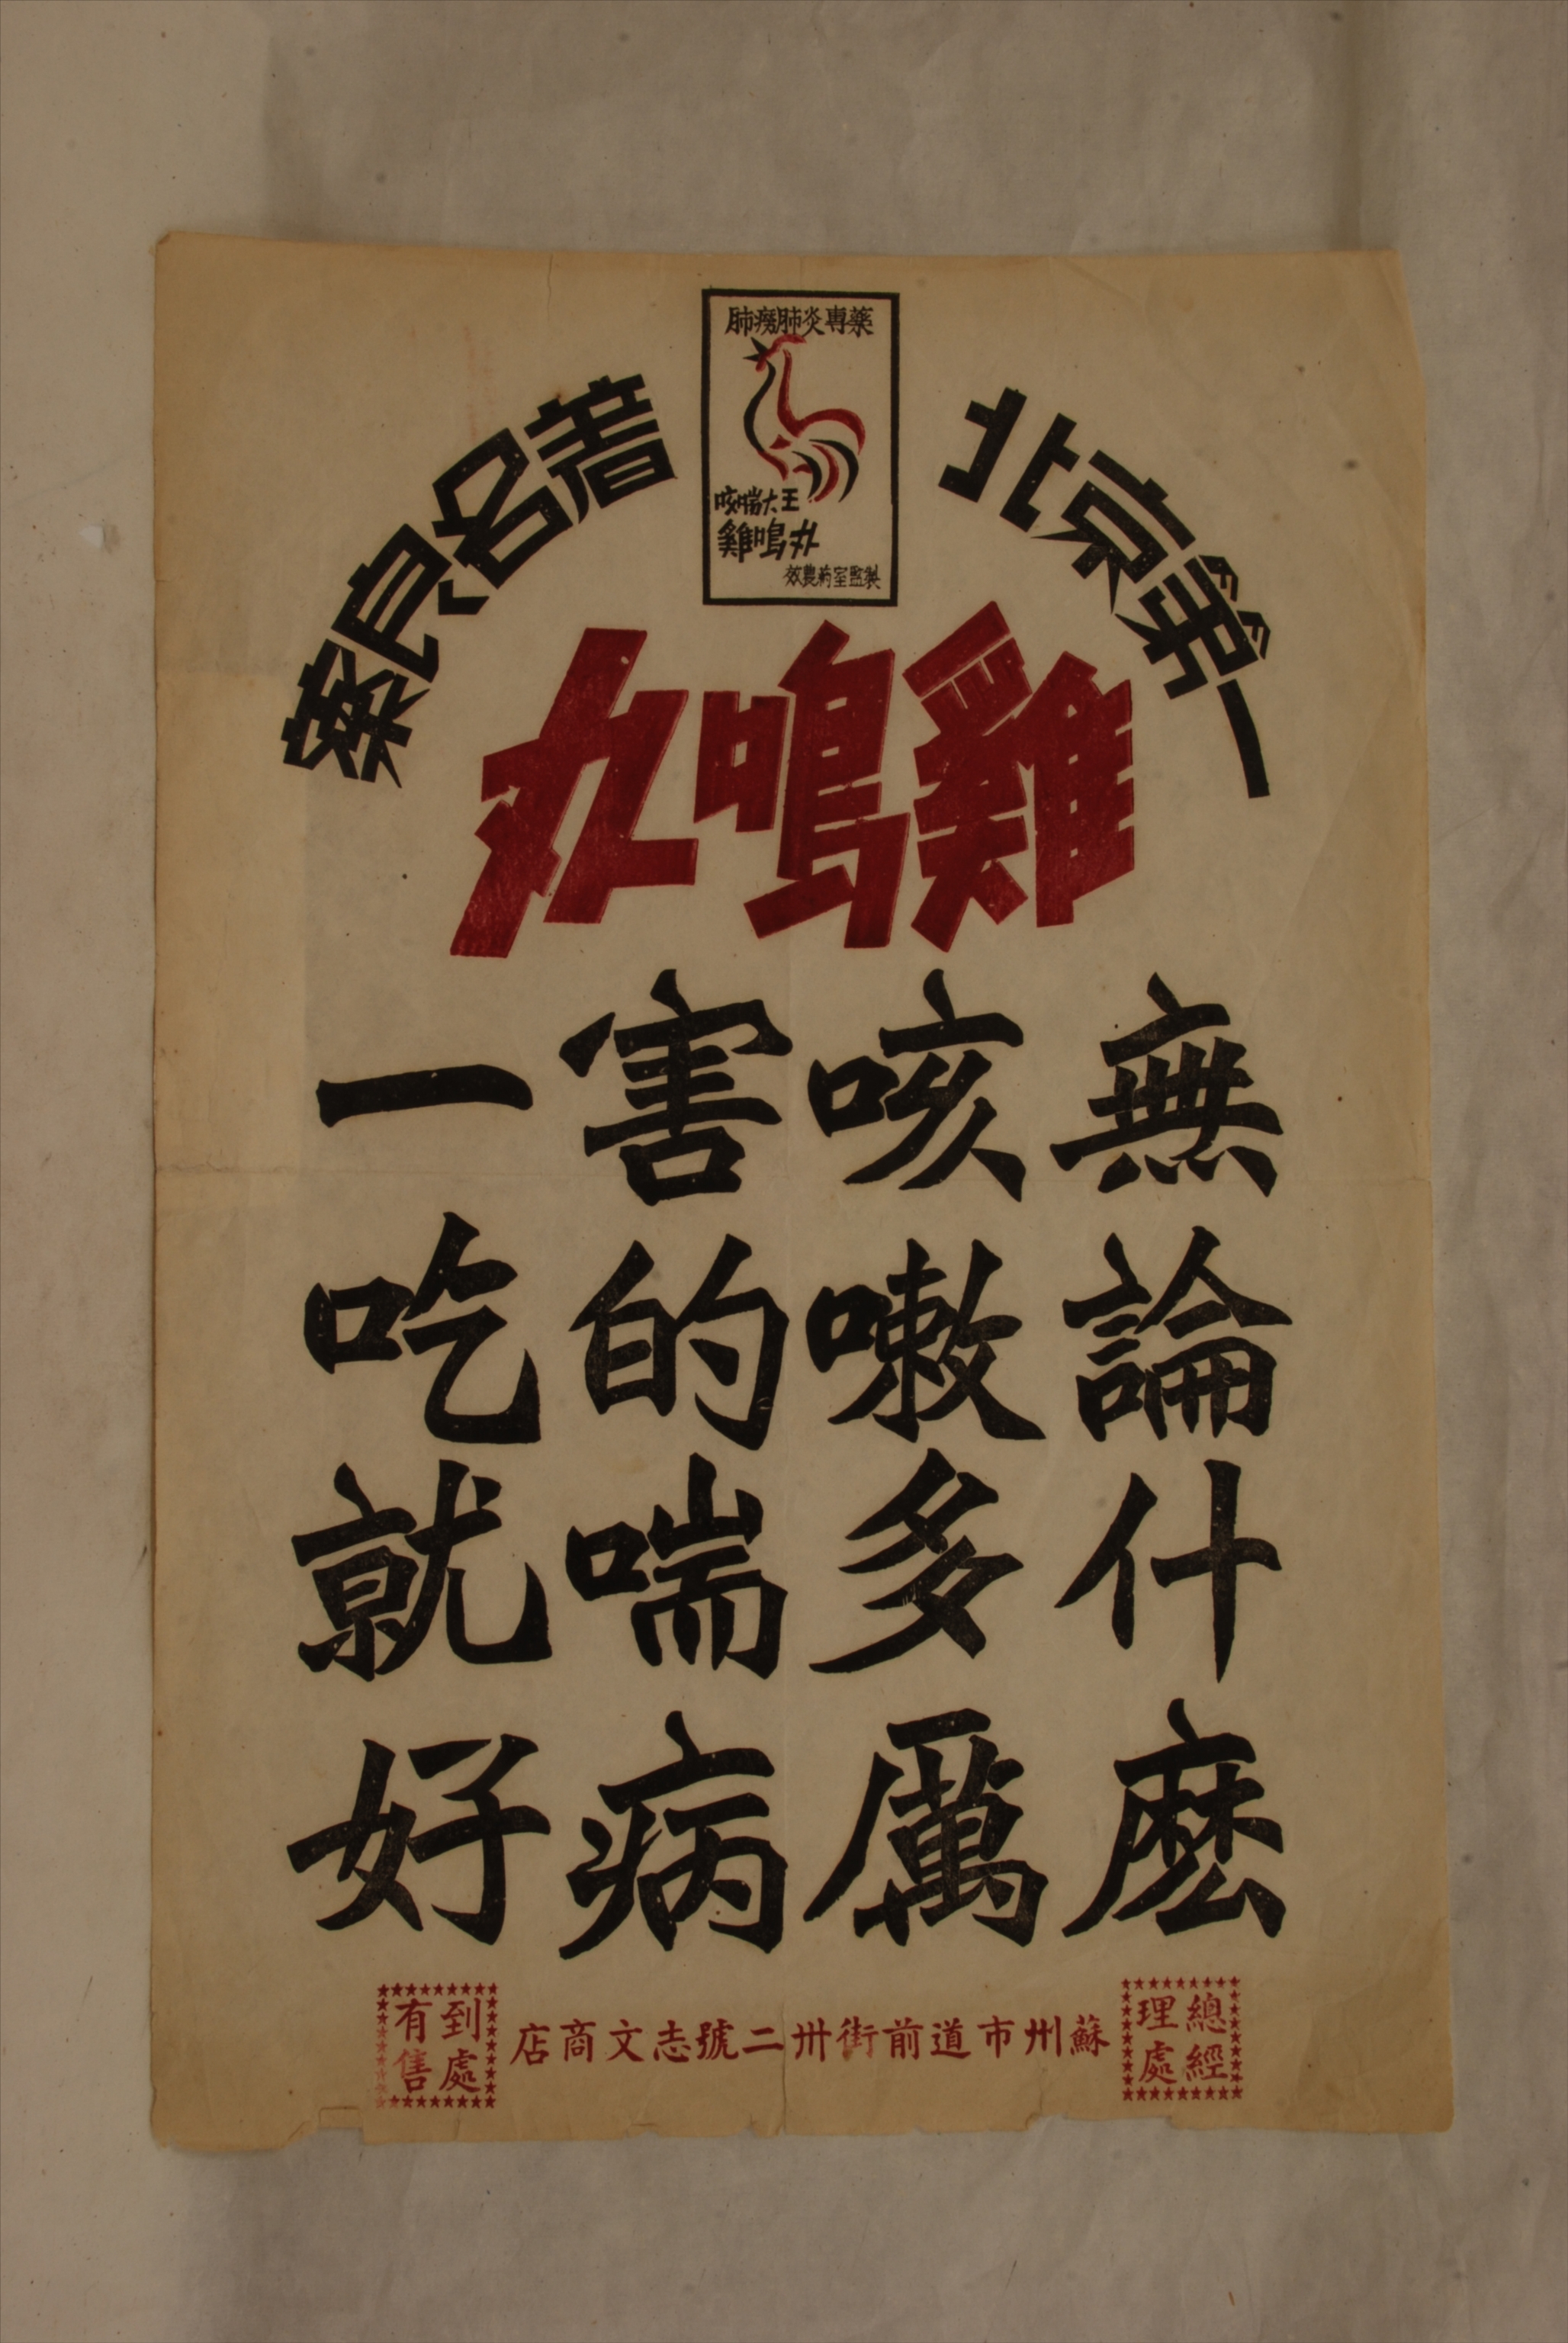 肺癆肺炎專藥
咳喘大王
雞鳴丸
效農葯室監製
北京第一
著名良藥
雞鳴丸
無論什麽
咳嗽多厲
害的喘病
一吃就好
總經理處
蘇州市道前街卅二號志文商店
到處有售